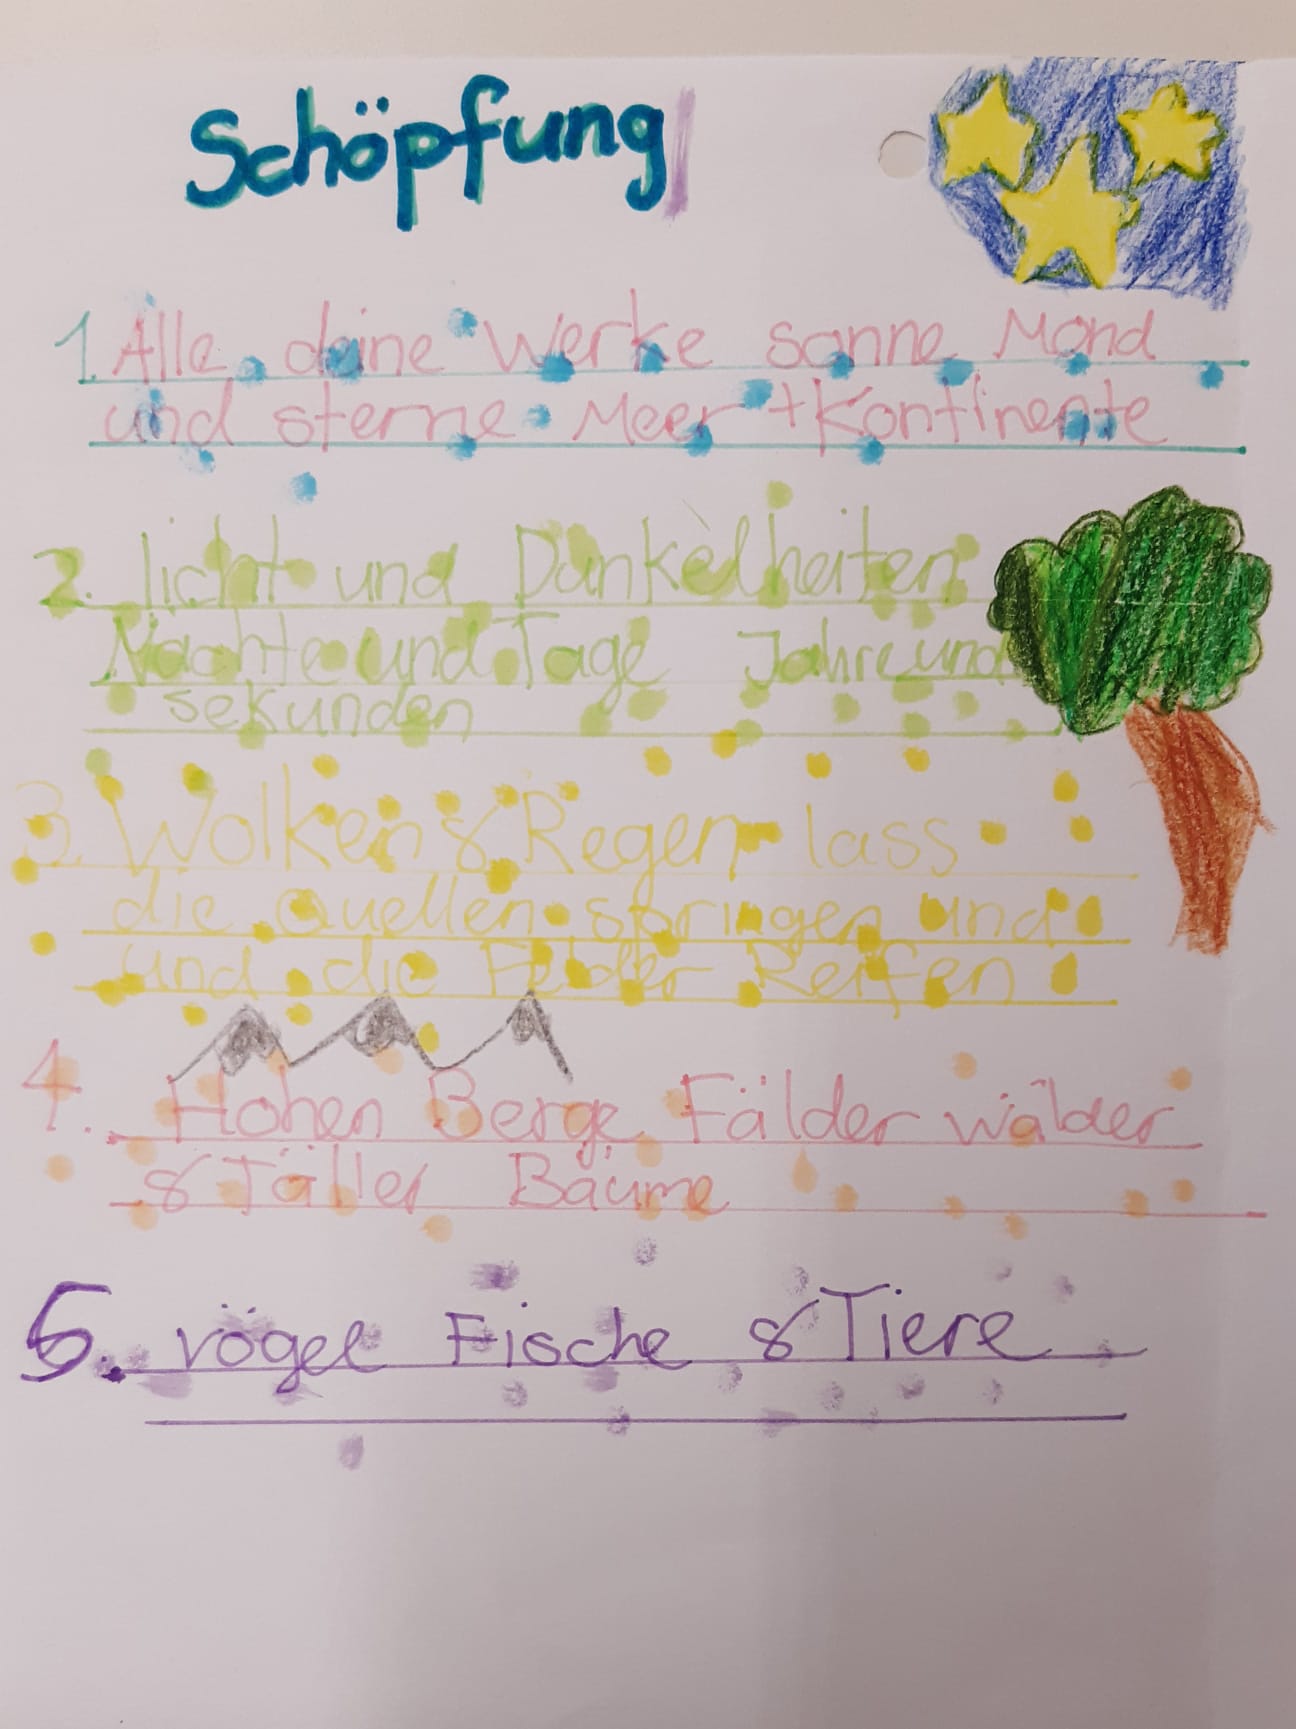 Schöpfung
1. Alle deine Werke sonne Mond
und sterne Meer + Kontinente
2. licht und Dunkelheiten
Nächte und Tage Jahre und
sekunden
3. Wolken & Regen lass
die Quellen springen und
und die Felder Reifen
4. Hohen Berge Fälder wälder
& Täller Bäume
5. vögel Fische & Tiere